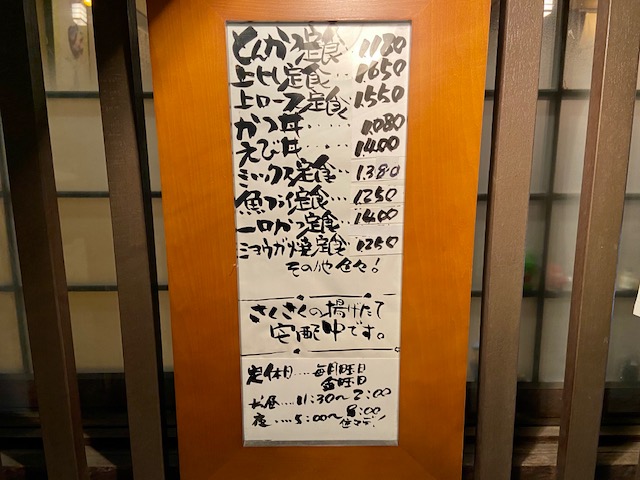 とんかつ定食 1.180
上ヒレ定食… 1.650
上ロース定食 1.550
かつ丼…… 1.080
えび丼…… 1.400
ミックス定食… 1.380
魚フライ定食… 1.250
一口かつ定食… 1.400
ミョウガ焼定食 1.250
その他色々!
さくさくの揚げたて
宅配中です。
定休日……毎月曜日
金曜日
お昼…11:30〜2:00
夜…5:00〜8:00